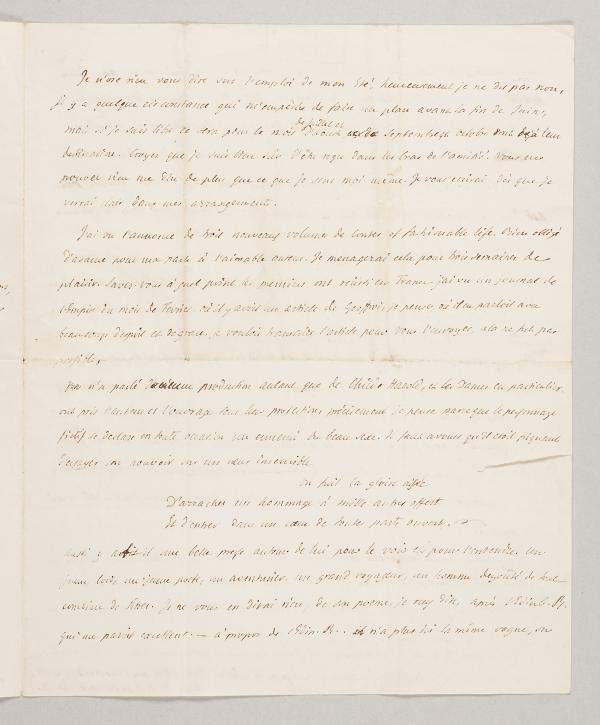 Je n'ose rien vous dire sur l'emploi de mon Eté, heureusement je ne dis pas non,
il y a quelque circonstance qui m'empêche de faire un plan avant la fin de Juin,
mais si je suis libre ce sera pour le mois
de juillet et
D'aoust septembre ou octobre
destination. Croyez que je suis bien sûr d'être reçu dans les bras de l'amitié. Vous ne
pouvez rien me dire de plus que ce que je sens moi même. Je vous écrirai dès que je
verrai clair dans mes arrangements.
J'ai vu l'annonce de trois nouveaux volumes de contes of fashionable life. Bien obligé
d'avance pour ma part à l'aimable auteur. Je menagerai cela pour trois semaines de
plaisir. Savez-vous à quel point les premiers ont réussi en France. j'ai vu un journal de
l'Empire du mois de Fevrier où il y avoit un article de Geoffroi, je pense, où il en parloit avec
beaucoup d'esprit et de grace. je voulois l'article pour vous l'envoyer, cela ne fut pas
possible.
n'a parlé d'aucune production autant que de Childe Harold, et les Dames en particulier
ont pris l'auteur et l'ouvrage sous leur protection, précisement je pense parce que le personnage
fictif se declare en toute occasion un ennemi du beau sexe. Il faut avouer qu'il étoit piquant
d'essayer son pouvoir sur un cœur insensible
on fuit la gloire aisée
D'arracher un hommage à mille autres offert
Et d'entrer dans un cœur de toute part ouvert.
aussi y avoit il une belle presse autour de lui pour le voir et pour l'entendre. Un
jeune lord, un jeune poete, un aventurier un grand voyageur, un homme degouté de tout
combien de titres. Je ne vous en dirai rien, de son poeme, je dis, après l'Edinb. R.
qui me paroit excellent. — à propos de l'Edin. R. . il n'a plus ici la même vogue, on